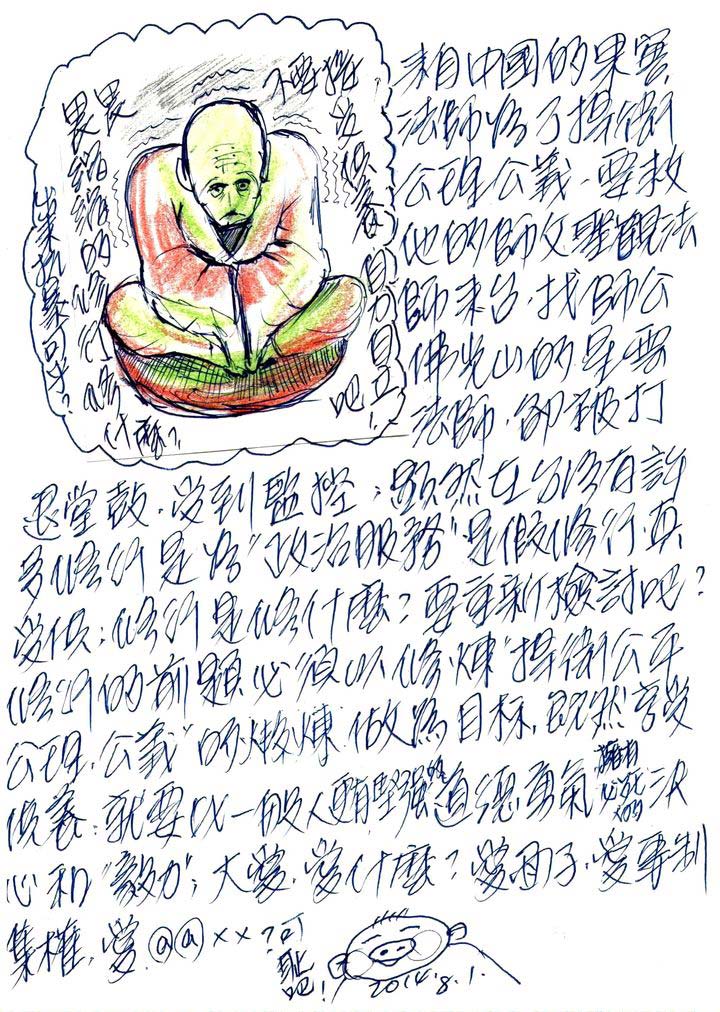 畏畏
縮縮的修行修
什麼?
豈抗暴可乎?
不要推
受供養
自力自立
吧!
來自中國的果實
法師為了捍衛
公理公義,要救
他的師父聖觀法
師來台,找師公
佛光山的星雲
法師,卻被打
退堂鼓,受到監控;顯然在台灣有許
多修行是為"政治服務"是假修行真
受供;修行是修什麼?要重新檢討吧?
修行的前題必須以修煉"捍衛公平
公理、公義"的燉煉做為目標,既然享受
供養,就要以一般人更堅強的道德勇氣擁有必死的決
心和"毅力";大愛,愛什麼?愛面子,愛專制
集權,愛@@××?可
恥吧!
2014.8.1.